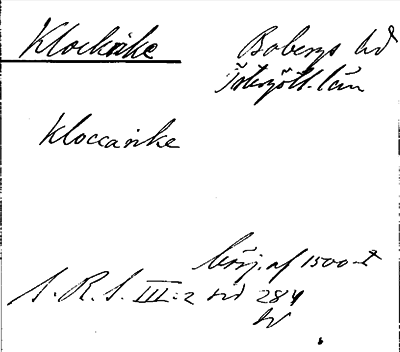 Klockrike
Bobergs hd
Östergötl. län
Kloccarike
börj. af 1500-t
S. R. S. III:2 sid 284